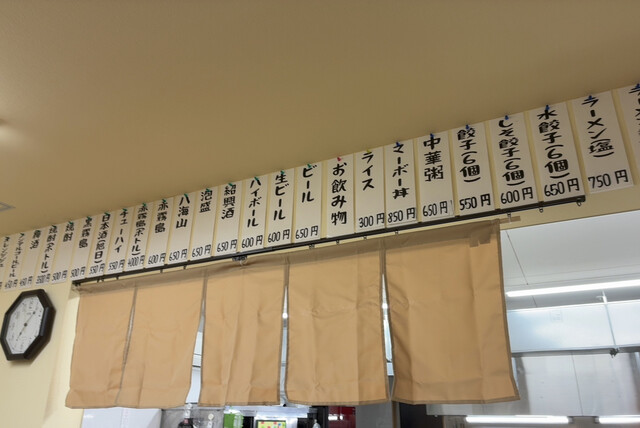 ラーメン(塩) 750円
水餃子(6個) 650円
しそ餃子(6個) 600円
餃子(6個) 550円
中華粥 650円
マーボー丼 850円
ライス 300円
お飲み物
ビール 650円
生ビール 600円
ハイボール 600円
紹興酒 650円
泡盛 650円
八海山 650円
赤霧島 600円
赤霧島(ボトル) 4000円
チューハイ 550円
日本酒(旭日) 550円
焼酎
梅酒